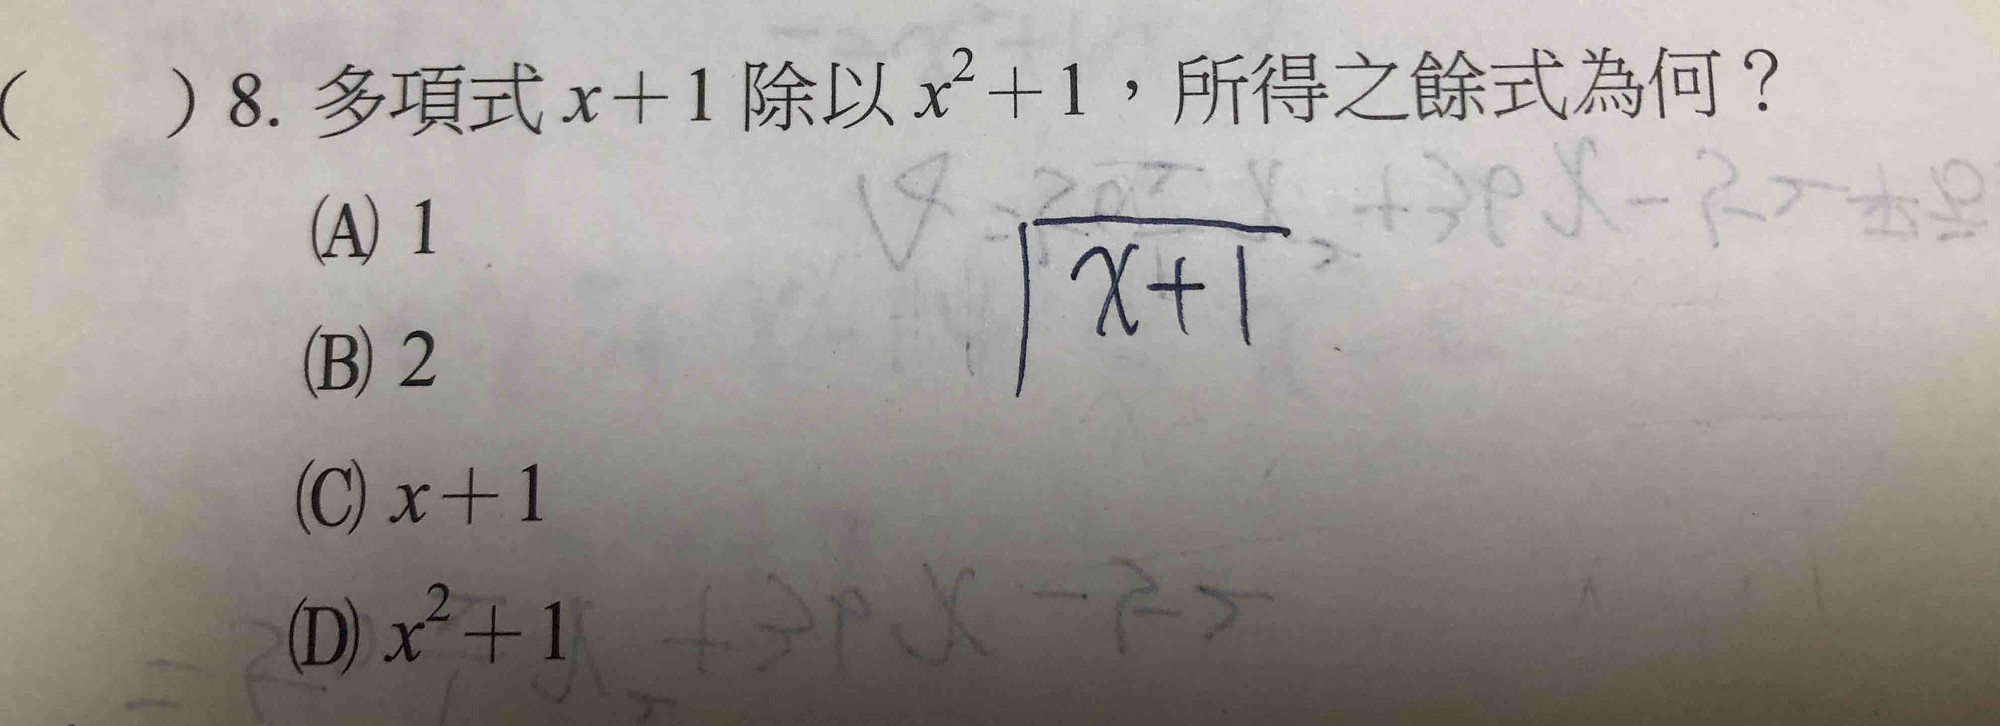 ( ) 8. 多項式 x+1 除以 x²+1，所得之餘式為何？
(A) 1
x+1
(B) 2
(C) x+1
(D) x²+1